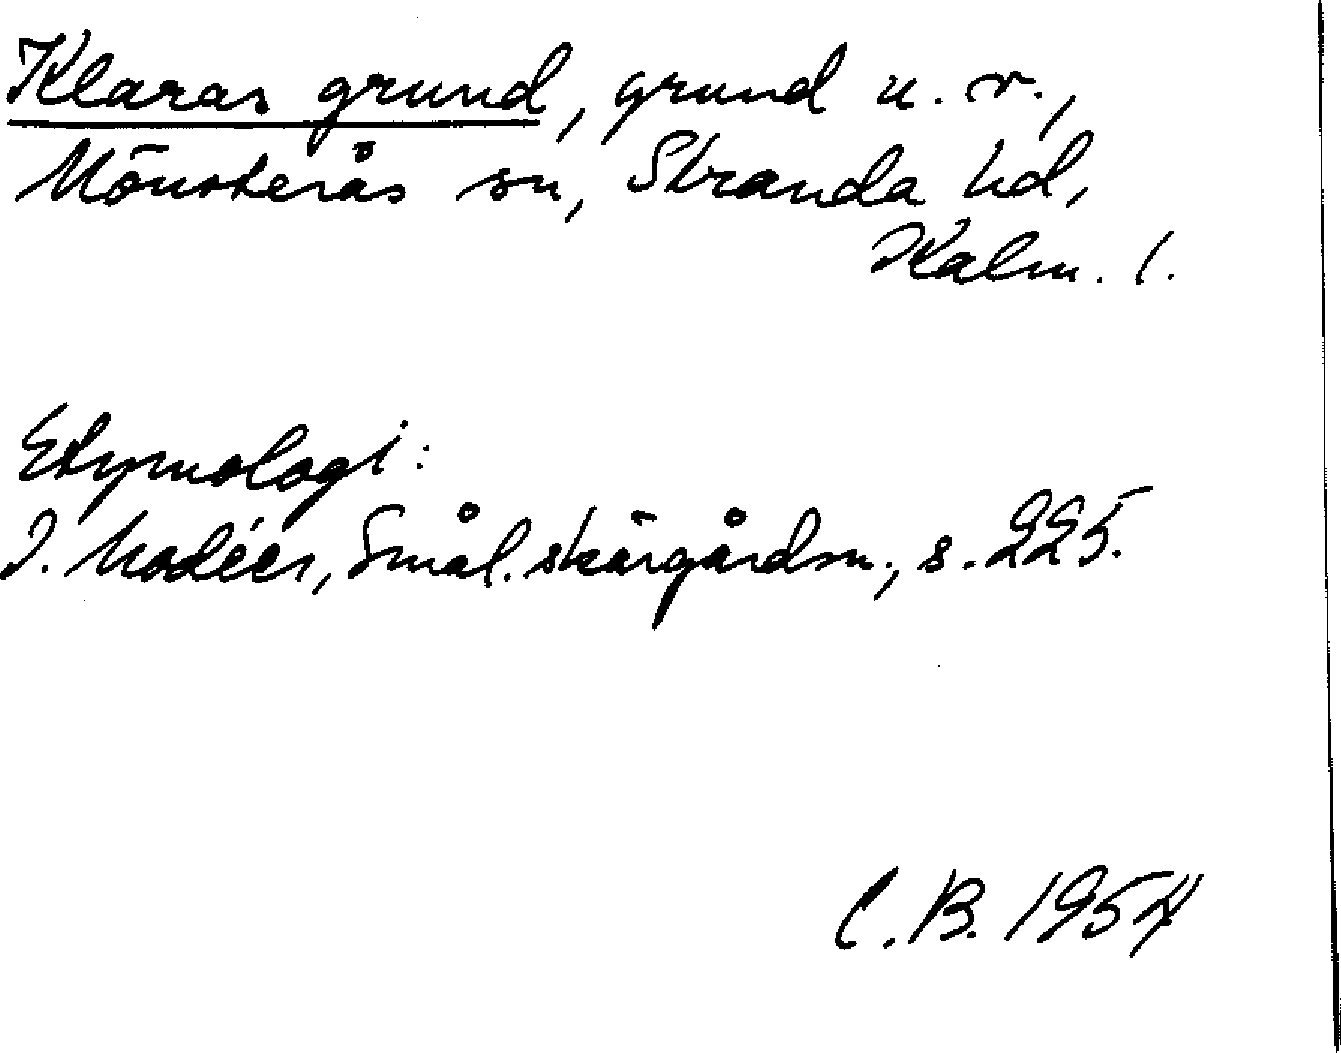 Klaras grund, grund u. v.,
Mönsterås sn, Stranda hd,
Kalm. l.
Etymologi:
I. Modéer, Smål. skärgårdsn., s. 225.
C. B. 1954